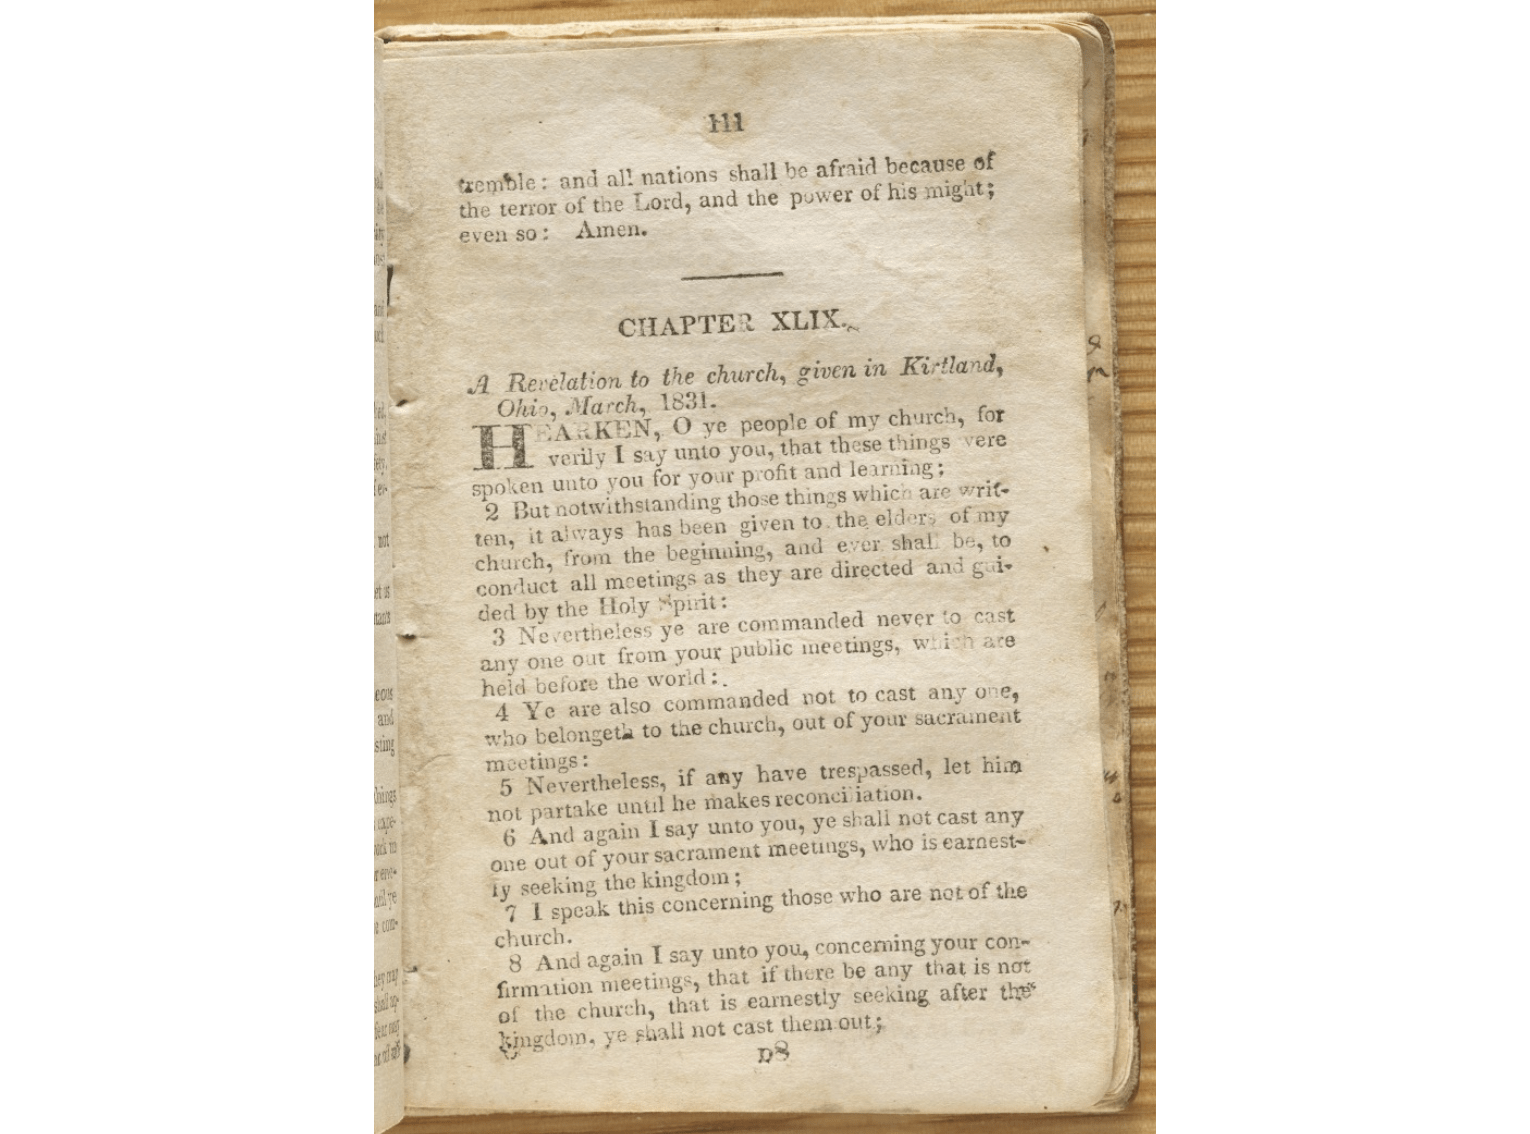 111
tremble: and all nations shall be afraid because of
the terror of the Lord, and the power of his might;
even so: Amen.
CHAPTER XLIX.
A Revelation to the church, given in Kirtland,
Ohio, March, 1831.
HEARKEN, O ye people of my church, for
verily I say unto you, that these things were
spoken unto you for your profit and learning;
2 But notwithstanding those things which are writ-
ten, it always has been given to the elders of my
church, from the beginning, and ever shall be, to
conduct all meetings as they are directed and gui-
ded by the Holy Spirit:
3 Nevertheless ye are commanded never to cast
any one out from your public meetings, which are
held before the world:
4 Ye are also commanded not to cast any one,
who belongeth to the church, out of your sacrament
meetings:
5 Nevertheless, if any have trespassed, let him
not partake until he makes reconciliation.
6 And again I say unto you, ye shall not cast any
one out of your sacrament meetings, who is earnest-
ly seeking the kingdom;
7 I speak this concerning those who are not of the
church.
8 And again I say unto you, concerning your con-
firmation meetings, that if there be any that is not
of the church, that is earnestly seeking after the
kingdom, ye shall not cast them out;
D8